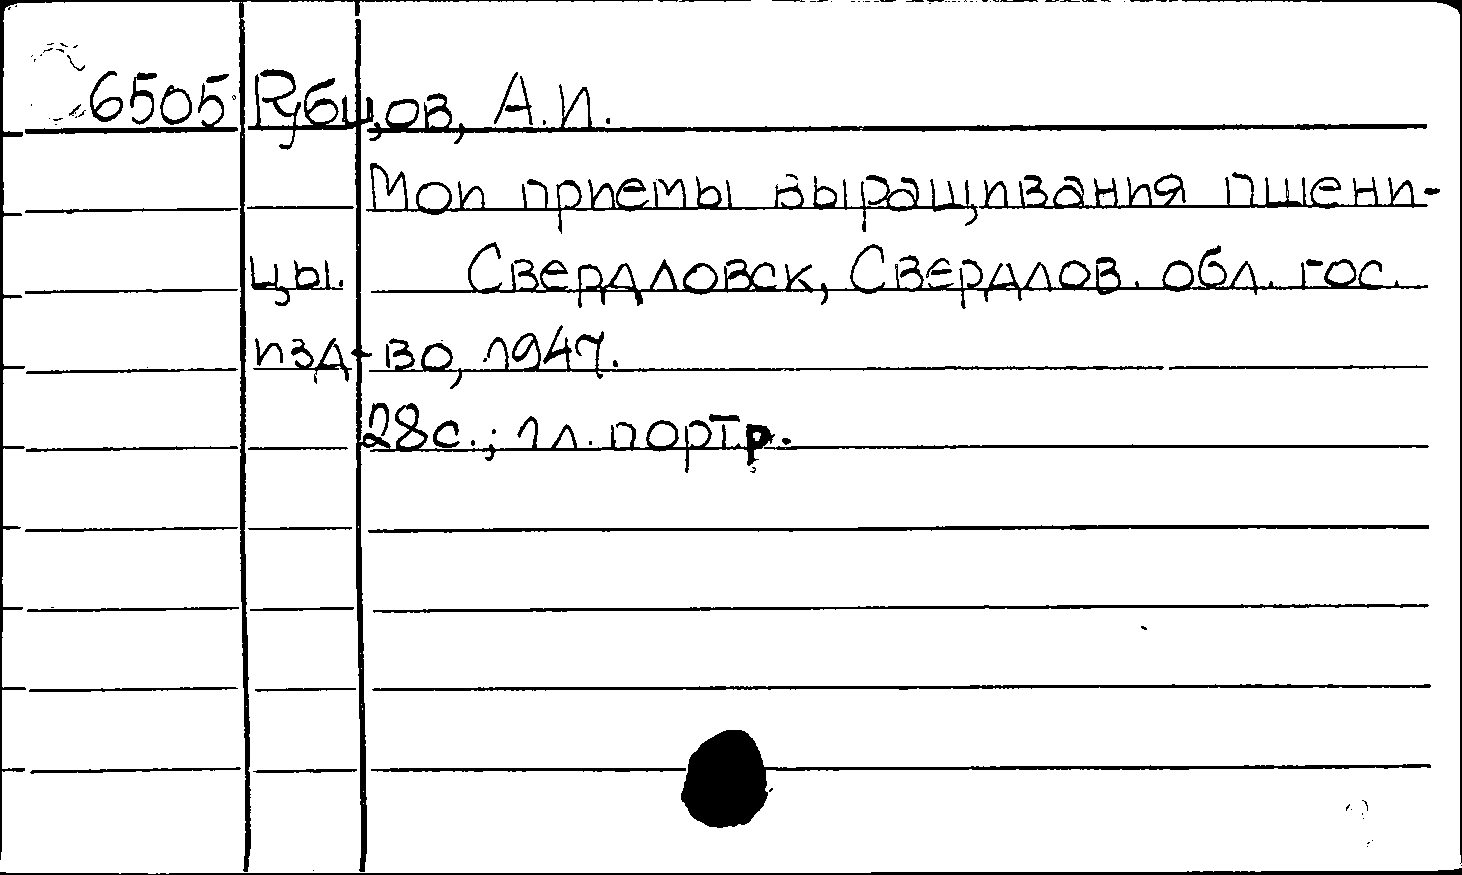 6505 Рубцов, А.И.
Мои приемы выращивания пшени-
цы. Свердловск, Свердлов. обл. гос.
изд-во, 1947.
28с.; 1л. портр.